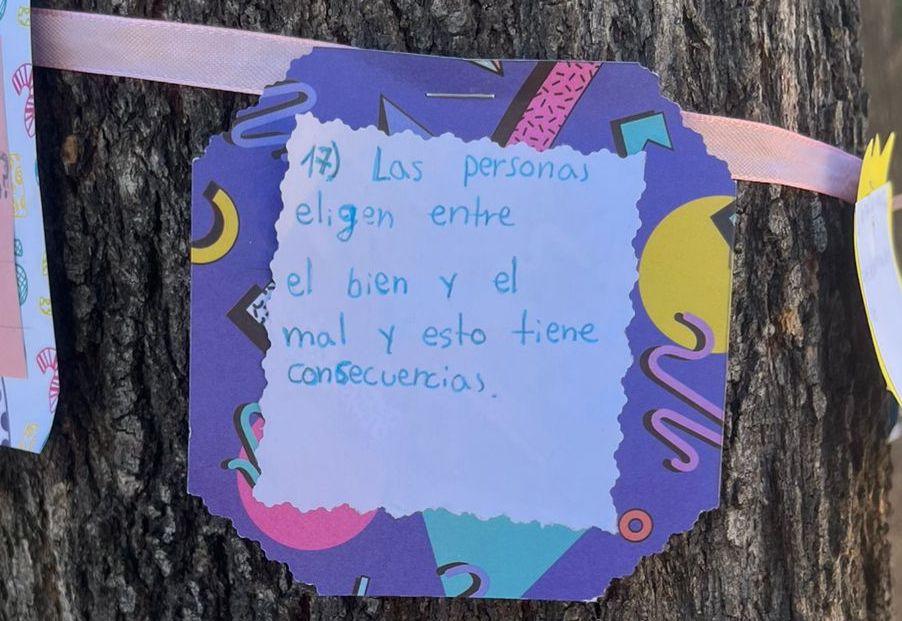 17) Las personas
eligen entre
el bien y el
mal y esto tiene
consecuencias.